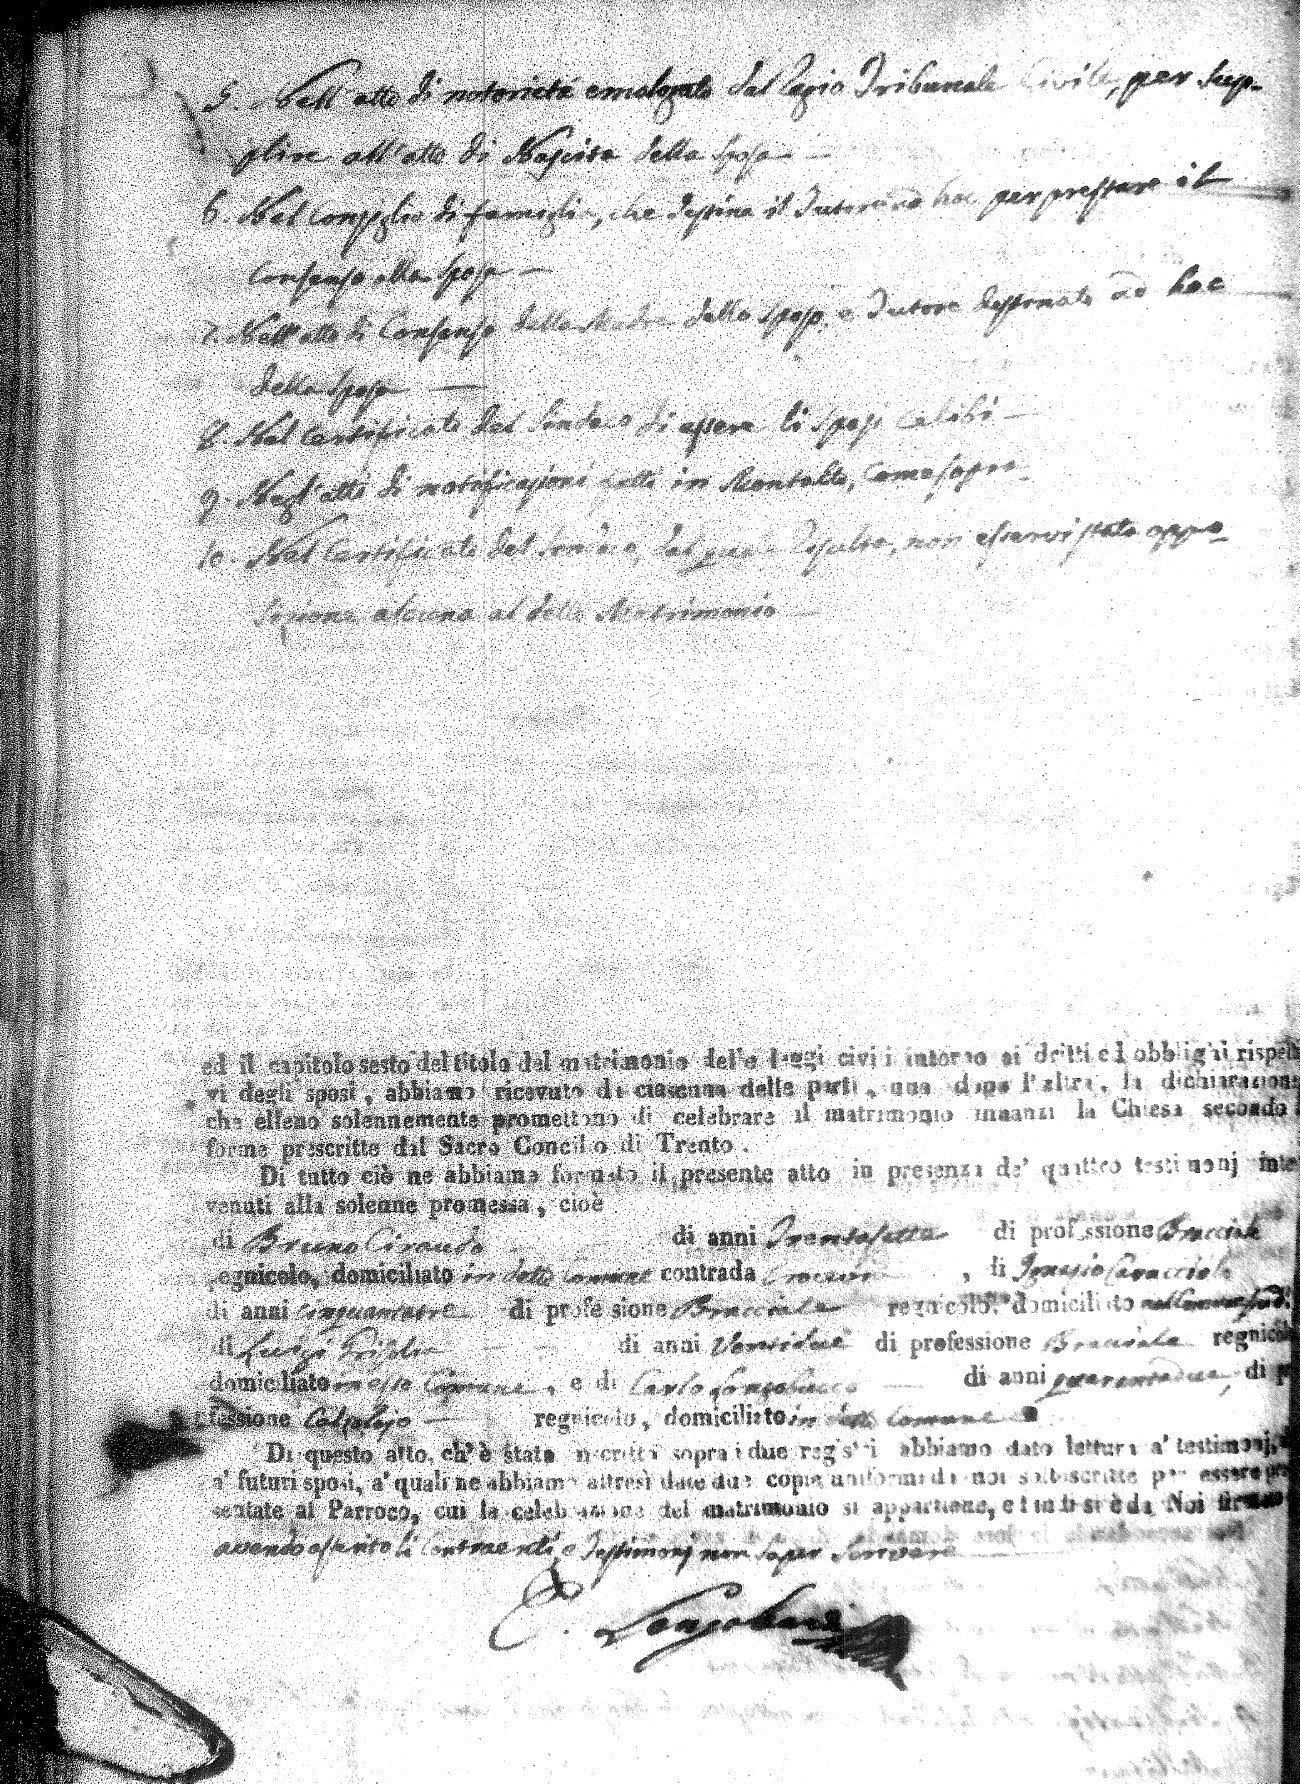 5. Nell'atto di notorietà omologato dal Regio Tribunale Civile, per sup-
plire all'atto di Nascita della sposa —
6. Nel Consiglio di famiglia, che destina il Tutore ad hoc per prestare il
Consenso alla sposa —
7. Nell'atto di Consenso della Madre dello sposo, e Tutore destinato ad hoc
della sposa —
8. Nel certificato del Sindaco di essere li sposi celibi —
9. Negl'atti di notificazioni fatti in Montalto, come sopra.
10. Nel Certificato del Sindaco, dal quale risulta, non esservi stata oppo-
sizione alcuna al detto Matrimonio —
ed il capitolo sesto del titolo del matrimonio delle leggi civili intorno ai dritti ed obblighi rispetti
vi degli sposi, abbiamo ricevuto da ciascuna delle parti, una dopo l'altra, la dichiarazione
che elleno solennemente promettono di celebrare il matrimonio innanzi la Chiesa secondo
forme prescritte dal Sacro Concilio di Trento.
Di tutto ciò ne abbiamo formato il presente atto in presenza de' quattro testimonj inte
venuti alla solenne promessa, cioè
di Bruno Ciraudo di anni Trentasette di professione Bracciale
regnicolo, domiciliato in detto Comune contrada , di Ignazio Caracciolo
di anni cinquantatre di professione Bracciale regnicolo, domiciliato
di Luigi di anni Ventidue di professione Bracciale regnicolo
domiciliato in esso Comune, e di Carlo Longobucco — di anni quarantadue, di p
fessione Calzolajo — regnicolo, domiciliato in detto Comune
Di questo atto, ch'è stato inscritto sopra i due registri abbiamo dato lettura a' testimonj,
a' futuri sposi, a' quali ne abbiamo altresì date due copie uniformi da noi sottoscritte per essere pre
sentate al Parroco, cui la celebrazione del matrimonio si appartiene, e indi si è da Noi firmato
avendo asserito li Contraenti, e Testimonj non saper scrivere —